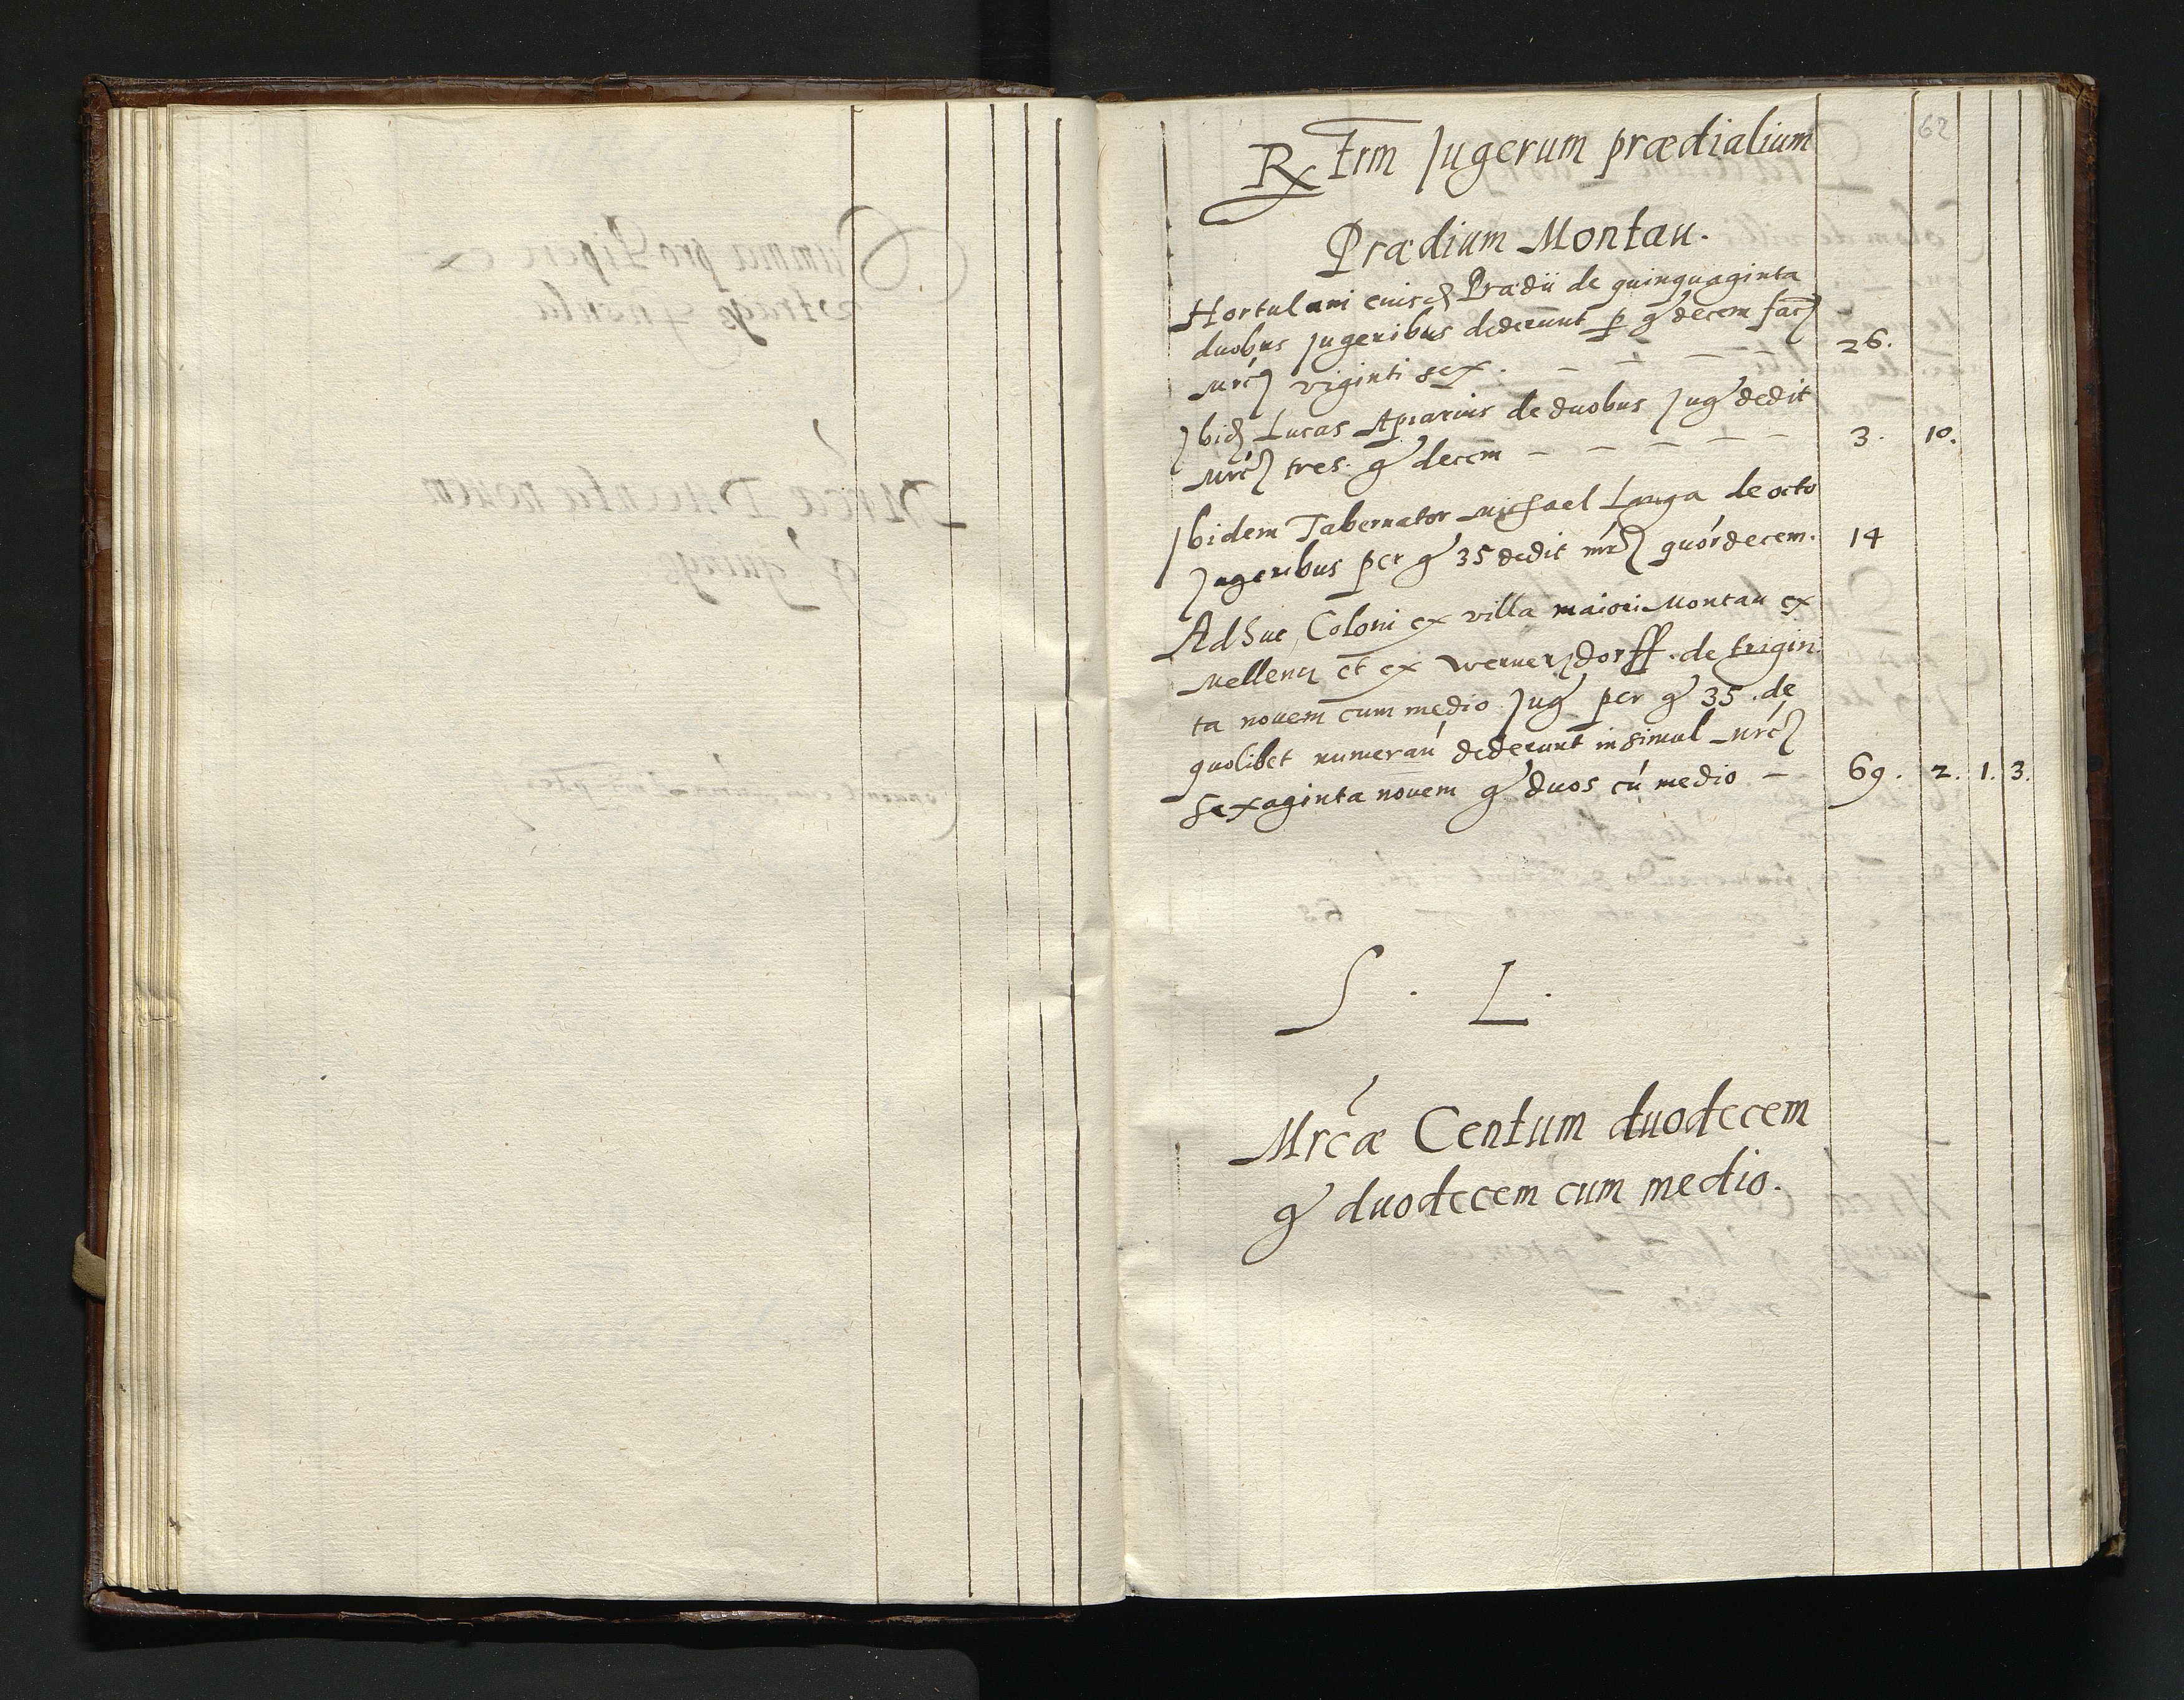 62
Rx Frm Jugerum prædialium
Prædium Montau.
Hortulani euisdę Prædii de quinquaginta
duobus Jugeribus dederunt p gͬ decem fac̃
Mrc̃ viginti sex. — — — — 26.
Ibidę Lucas Apiarius de duobus Jugͬ dedit
Mrc̃ tres. gͬ decem — — — — — 3. 10.
Ibidem Tabernator Michael Langa de octo
Jugeribus per gͬ 35 dedit mrc̃ quórdecem. 14
Adhuc Coloni ex villa maiori Montau ex
et ex Wernersdorff. de trigin
ta novem cum medio Jugͬ per gͬ 35. de
quolibet numeraú dederunt insimul Mrc̃
sexaginta novem gͬ duos cú medio — 69. 2. 1. 3.
S. L.
Mrcæ Centum duodecem
gͬ duodecem cum medio.